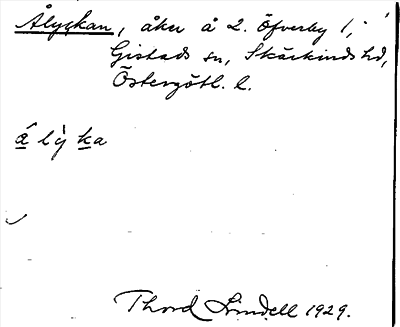 Ålyckan, åker å 2. Öfverby 1,
Gistads sn, Skärkinds hd,
Östergötl. l.
å lỳ ka
Thord Lindell 1929.